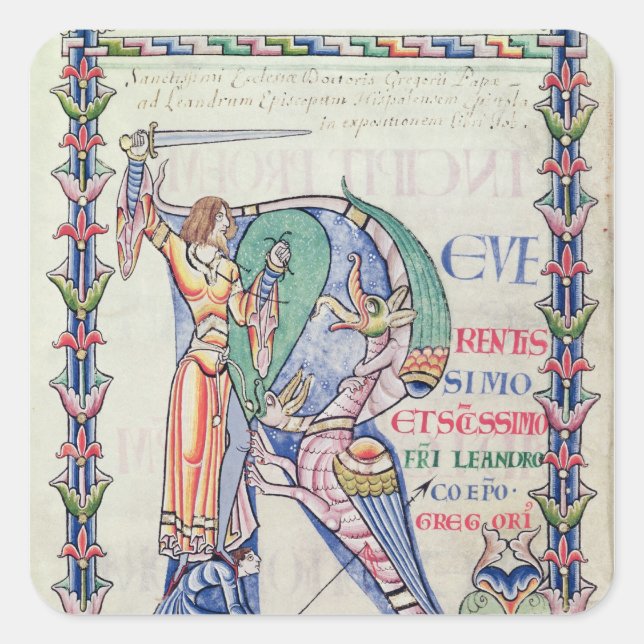 Sanctissimi Ecclesiæ Doctoris Gregorii Papæ
ad Leandrum Episcopum Hispalensem Epistola
in expositionem libri Iob.
INCIPIT PROEM
R
EVE
RENTIS
SIMO
ET SCĪSSIMO
FR̄I LEANDRO
COEPŌ·
GREGORI⁹